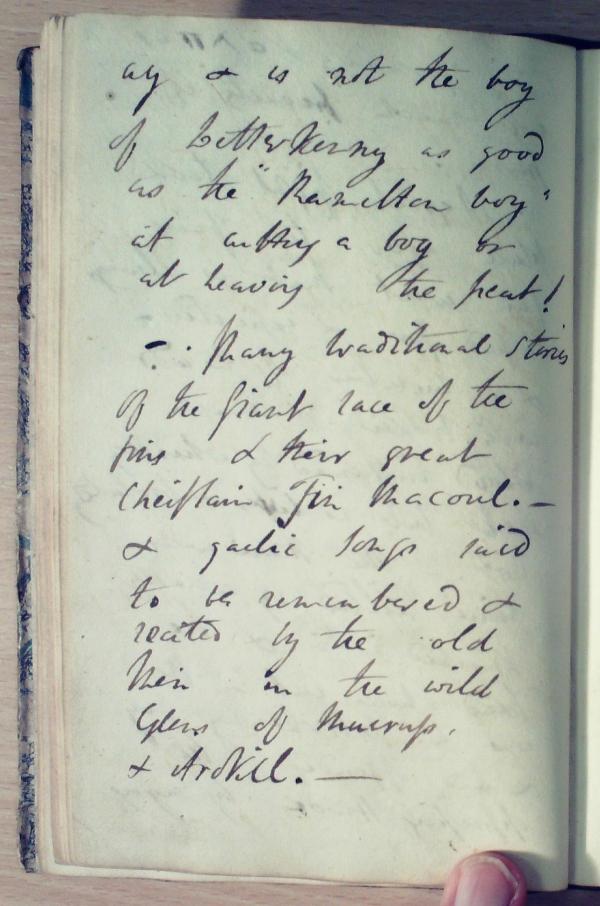 ay & is not the boy
of Letterkenny as good
as the "Ramelton boy"
at cutting a bog or
at heaving the peat!
- . Many traditional stories
of the Giant race of the
fins & their great
Cheiftain Fin Macoul. -
& gaelic songs said
to be remembered &
recited by the old
Men in the wild
Glens of
& Ardkill. —